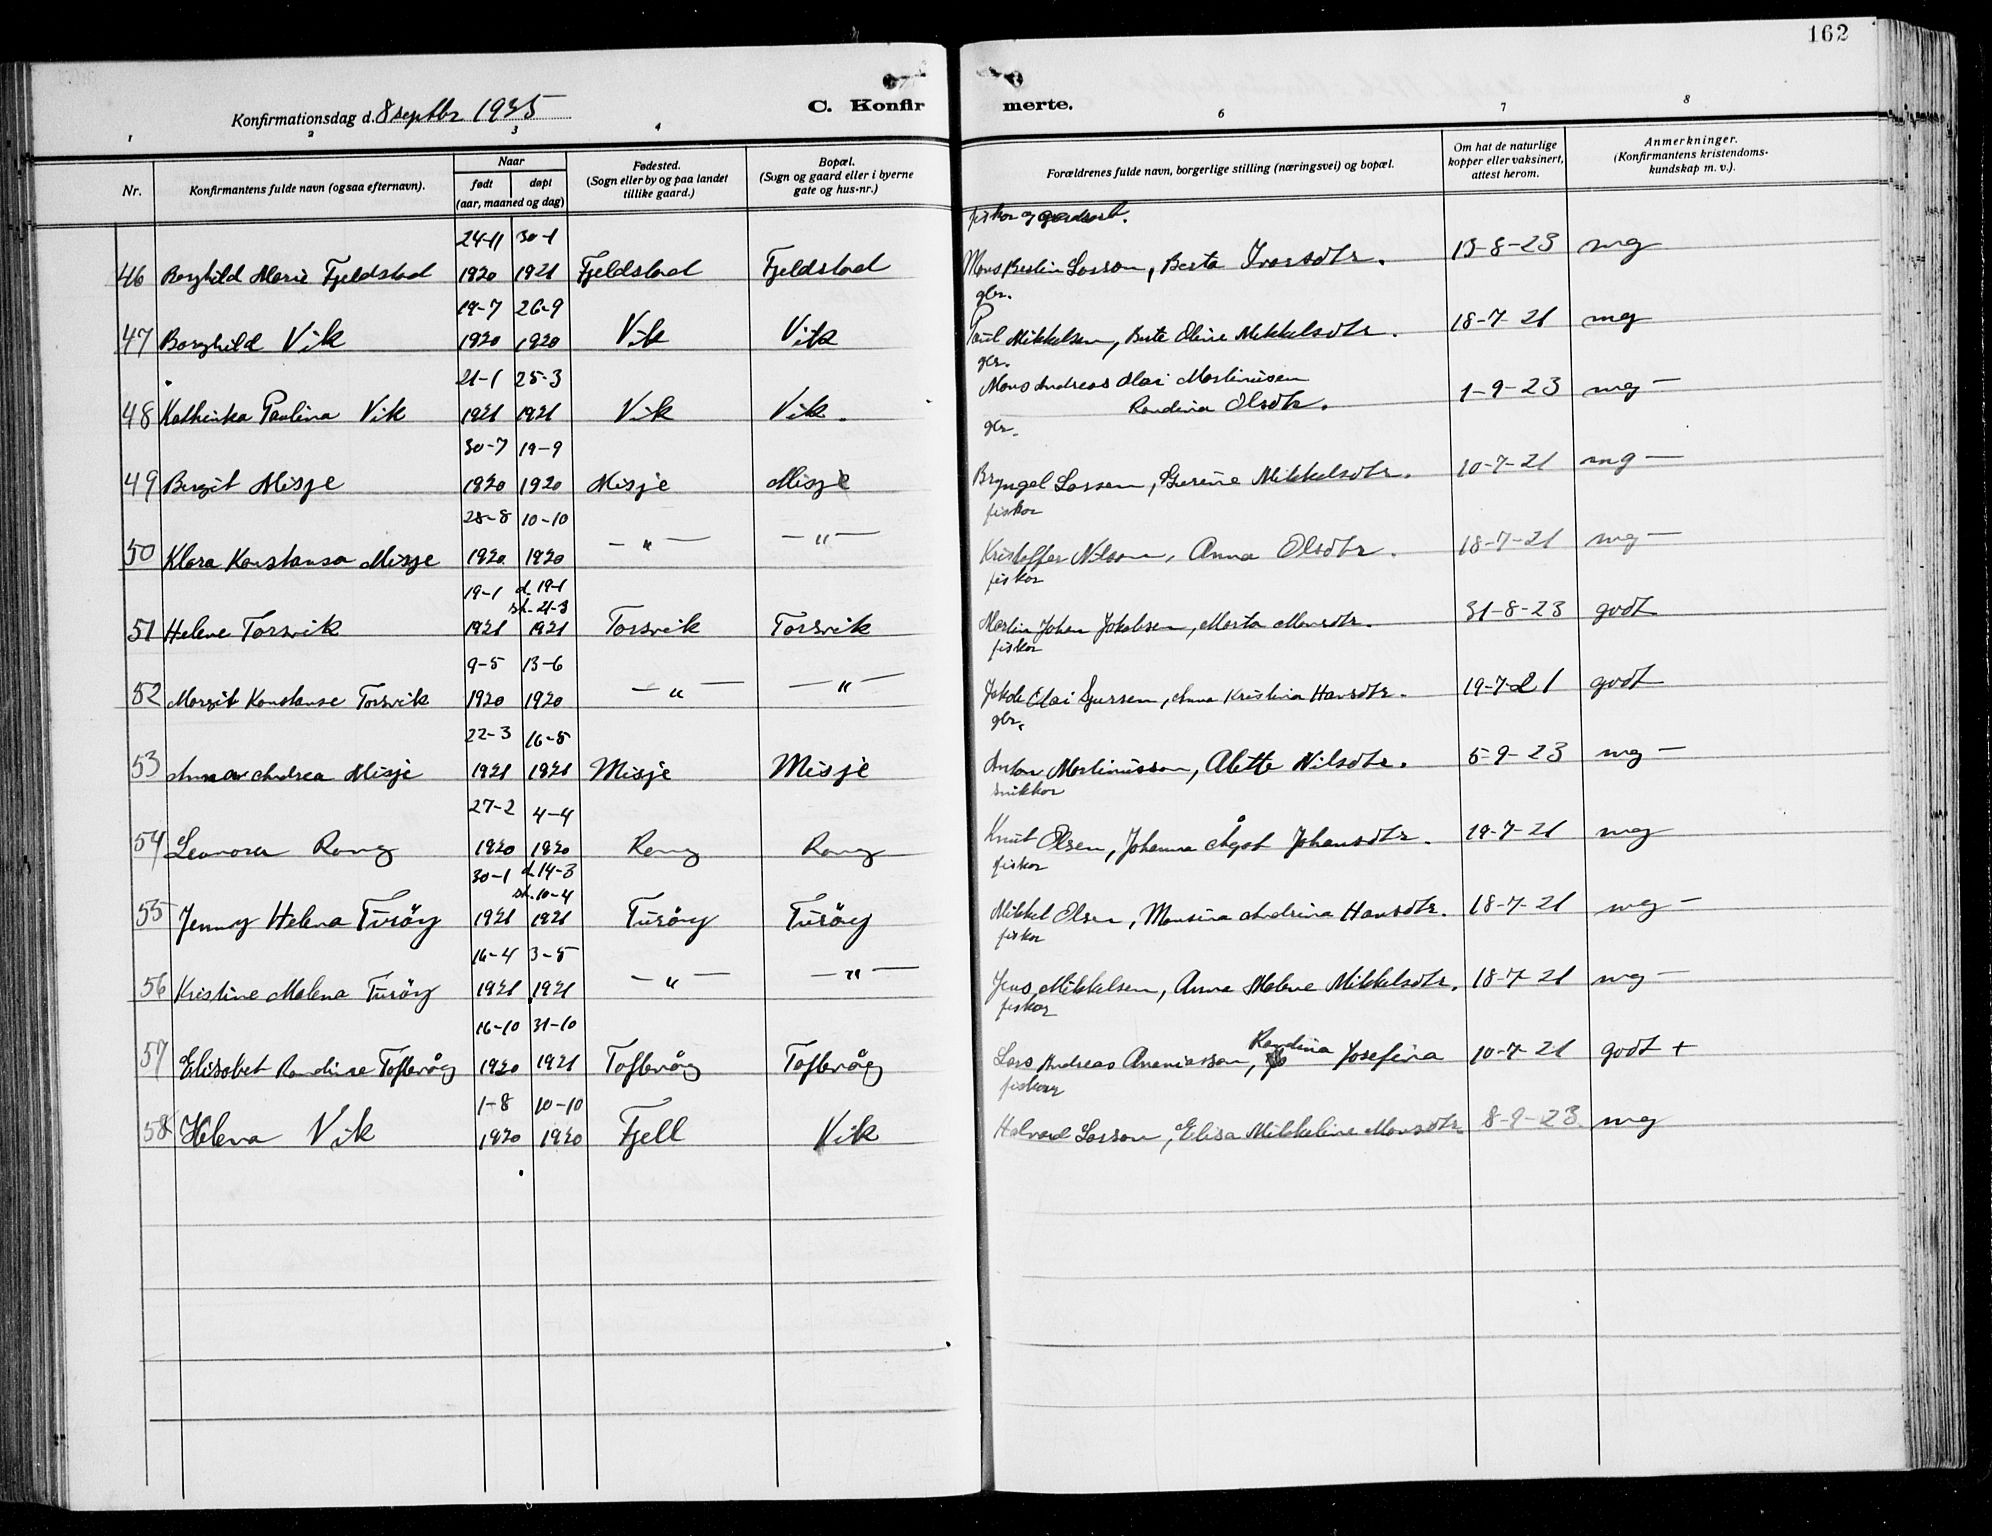 162
Konfirmationsdag d. 8 septbr 1935
C. Konfirmerte.
1 2 3 4 6 7 8
Nr.
Konfirmantens fulde navn (ogsaa efternavn).
Naar
født døpt
(aar, maaned og dag)
Fødested.
(Sogn eller by og paa landet
tillike gaard.)
Bopæl.
(Sogn og gaard eller i byerne
gate og hus-nr.)
Forældrenes fulde navn, borgerlige stilling (næringsvei) og bopæl.
Om hat de naturlige
kopper eller vaksinert,
attest herom.
Anmerkninger.
(Konfirmantens kristendoms-
kundskap m. v.).
24-11 30-1 fisker og
46 Borghild Marie Fjeldstad 1920 1921 Fjeldstad Fjeldstad Mons Larson, Berta Ivarsdtr. 13-8-23 mg
19-7 26-9 gbr.
47 Borghild Vik 1920 1920 Vik Vik Paul Mikkelsen, Berte Oline Mikkelsdtr. 18-7-21 mg
21-1 25-3 gbr.
48 Kathinka Paulina Vik 1921 1921 Vik Vik. Mons Andreas Olai Martinusen
Randina Olsdtr. 1-9-23 mg —
30-7 19-9 gbr.
49 Bergit Misje 1920 1920 Misje Misje Bryngel Larsen, Gurine Mikkelsdtr. 10-7-21 mg —
28-8 10-10 fisker
50 Klara Konstansa Misje 1920 1920 — " — — " — Kristoffer Nilson, Anna Olsdtr. 18-7-21 mg —
19-1 d. 19-1 st. 21-3 fisker
51 Helene Torsvik 1921 1921 Torsvik Torsvik Martin Johan Jakobsen, Marta Monsdtr. 31-8-23 godt
9-5 13-6 fisker
52 Margit Konstanse Torsvik 1920 1920 — " — — " — Jakob Olai Sjursen, Anna Kristina Hansdtr. 19-7-21 godt
22-3 16-5 gbr.
53 Anna Andrea Misje 1921 1921 Misje Misje Anton Martinusson, Alette Nilsdtr. 5-9-23 mg —
27-2 4-4 snikkor
54 Leonora Rong 1920 1920 Rong Rong Knut Olsen, Johanna Ågot Johansdtr. 19-7-21 mg
30-1 d. 14-3 st. 10-4 fisker
55 Jenny Helena Turöy 1921 1921 Turöy Turöy Mikkel Olsen, Monsina Andrina Hansdtr. 18-7-21 mg —
16-4 3-5 fisker
56 Kristine Malena Turöy 1921 1921 — " — — " — Jens Mikkelsen, Anna Malene Mikkelsdtr. 18-7-21 mg —
16-10 31-10 fisker
57 Elisabet Randine Toftevåg 1920 1921 Toftevåg Toftevåg Lars Andreas Ananiasson, Randina Josefina 10-7-21 godt +
1-8 10-10 fisker
58 Helena Vik 1920 1920 Fjell Vik Halvard Larson, Elisa Mikkeline Monsdtr 8-9-23 mg